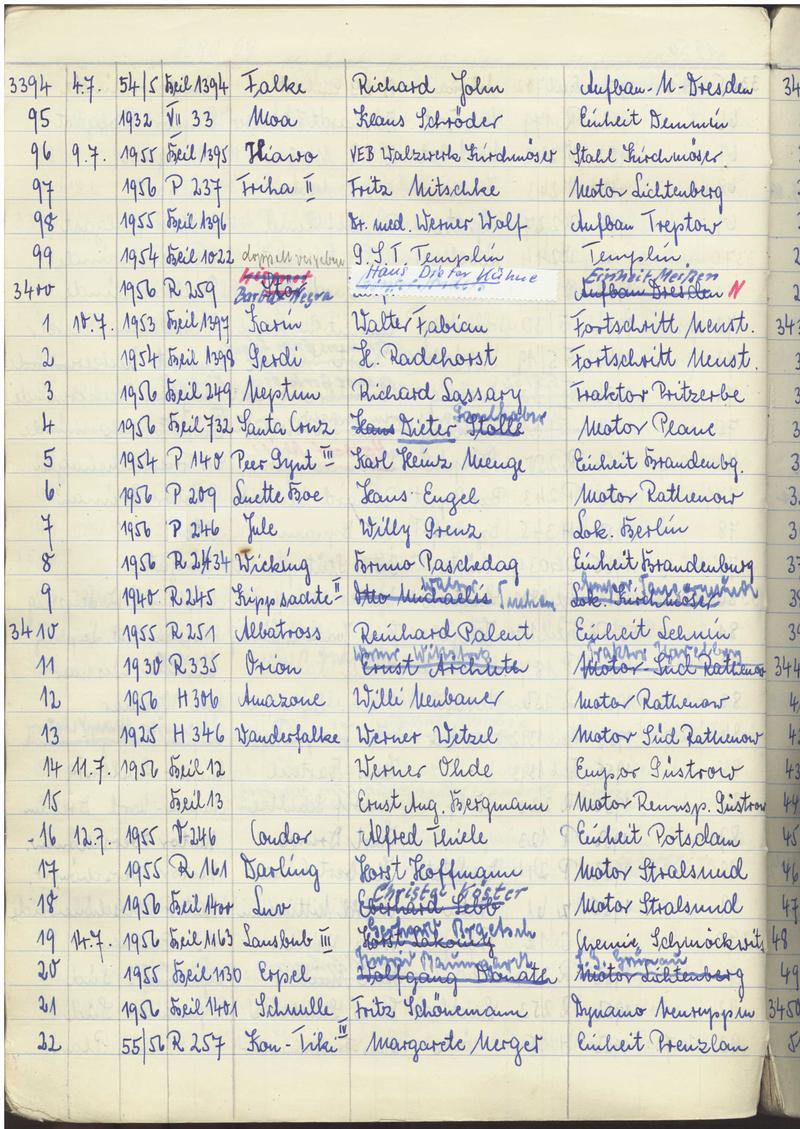 3394 4.7. 54/5 Beil 1394 Falke Richard John Aufbau-M-Dresden 34
95 1932 VII 33 Moa Klaus Schröder Einheit Demmin
96 9.7. 1955 Beil 1395 Hiawo VEB Walzwerk Kirchmöser Stahl Kirchmöser
97 1956 P 237 Friha II Fritz Mitschke Motor Lichtenberg
98 1955 Beil 1396 Dr. med. Werner Wolf Aufbau Treptow
99 1954 Beil 1022 doppelt vergeben G.S.T. Templin Templin
Hans Dieter Kühne Einheit Meißen
3400 1956 R 259 Barba Negra Aufbau Dresden N
1 10.7. 1953 Beil 1397 Karin Walter Fabian Fortschritt Neust. 343
2 1954 Beil 1398 Gerdi H. Radehorst Fortschritt Neust.
3 1956 Beil 249 Neptun Richard Lassary Traktor Pritzerbe
4 1956 Beil 732 Santa Cruz Hans Dieter Stolle Motor Plaue
5 1954 P 140 Peer Gynt III Karl Heinz Menge Einheit Brandenbg.
6 1956 P 209 Luette Boe Hans Engel Motor Rathenow
7 1956 P 246 Jule Willy Grenz Lok. Berlin
8 1956 R 234 Wicking Bruno Paschedag Einheit Brandenburg 37
Walter Empor Tangermünde
9 1940 R 245 Kippsachte II Otto Michaelis Lok. Kirchmöser 38
3410 1955 R 251 Albatross Reinhard Palent Einheit Lehnin 39
Traktor Havelberg
11 1930 R 335 Orion Ernst Motor Süd Rathenow 344
12 1956 H 306 Amazone Willi Neubauer Motor Rathenow 4
13 1925 H 346 Wanderfalke Werner Wetzel Motor Süd Rathenow 42
14 11.7. 1956 Beil 12 Werner Ohde Empor Güstrow 43
15 Beil 13 Ernst Aug. Bergmann Motor Rennsp. Güstrow 44
16 12.7. 1955 V 246 Condor Alfred Thiele Einheit Potsdam 45
17 1955 R 161 Darling Horst Hoffmann Motor Stralsund 46
Christel Köster
18 1956 Beil 1400 Luv Eberhard Lebb Motor Stralsund 47
Gerhard
19 14.7. 1956 Beil 1163 Lausbub III Horst Chemie Schmöckwitz 48
Baumgardt Grünau
20 1955 Beil 1130 Erpel Wolfgang Donath Motor Lichtenberg 49
21 1956 Beil 1401 Schnulle Fritz Schönemann Dynamo Neuruppin 3450
22 55/56 R 257 Kon-Tiki IV Margarete Merger Einheit Prenzlau 5